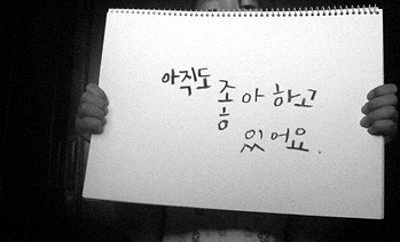 아직도
좋아하고
있어요.